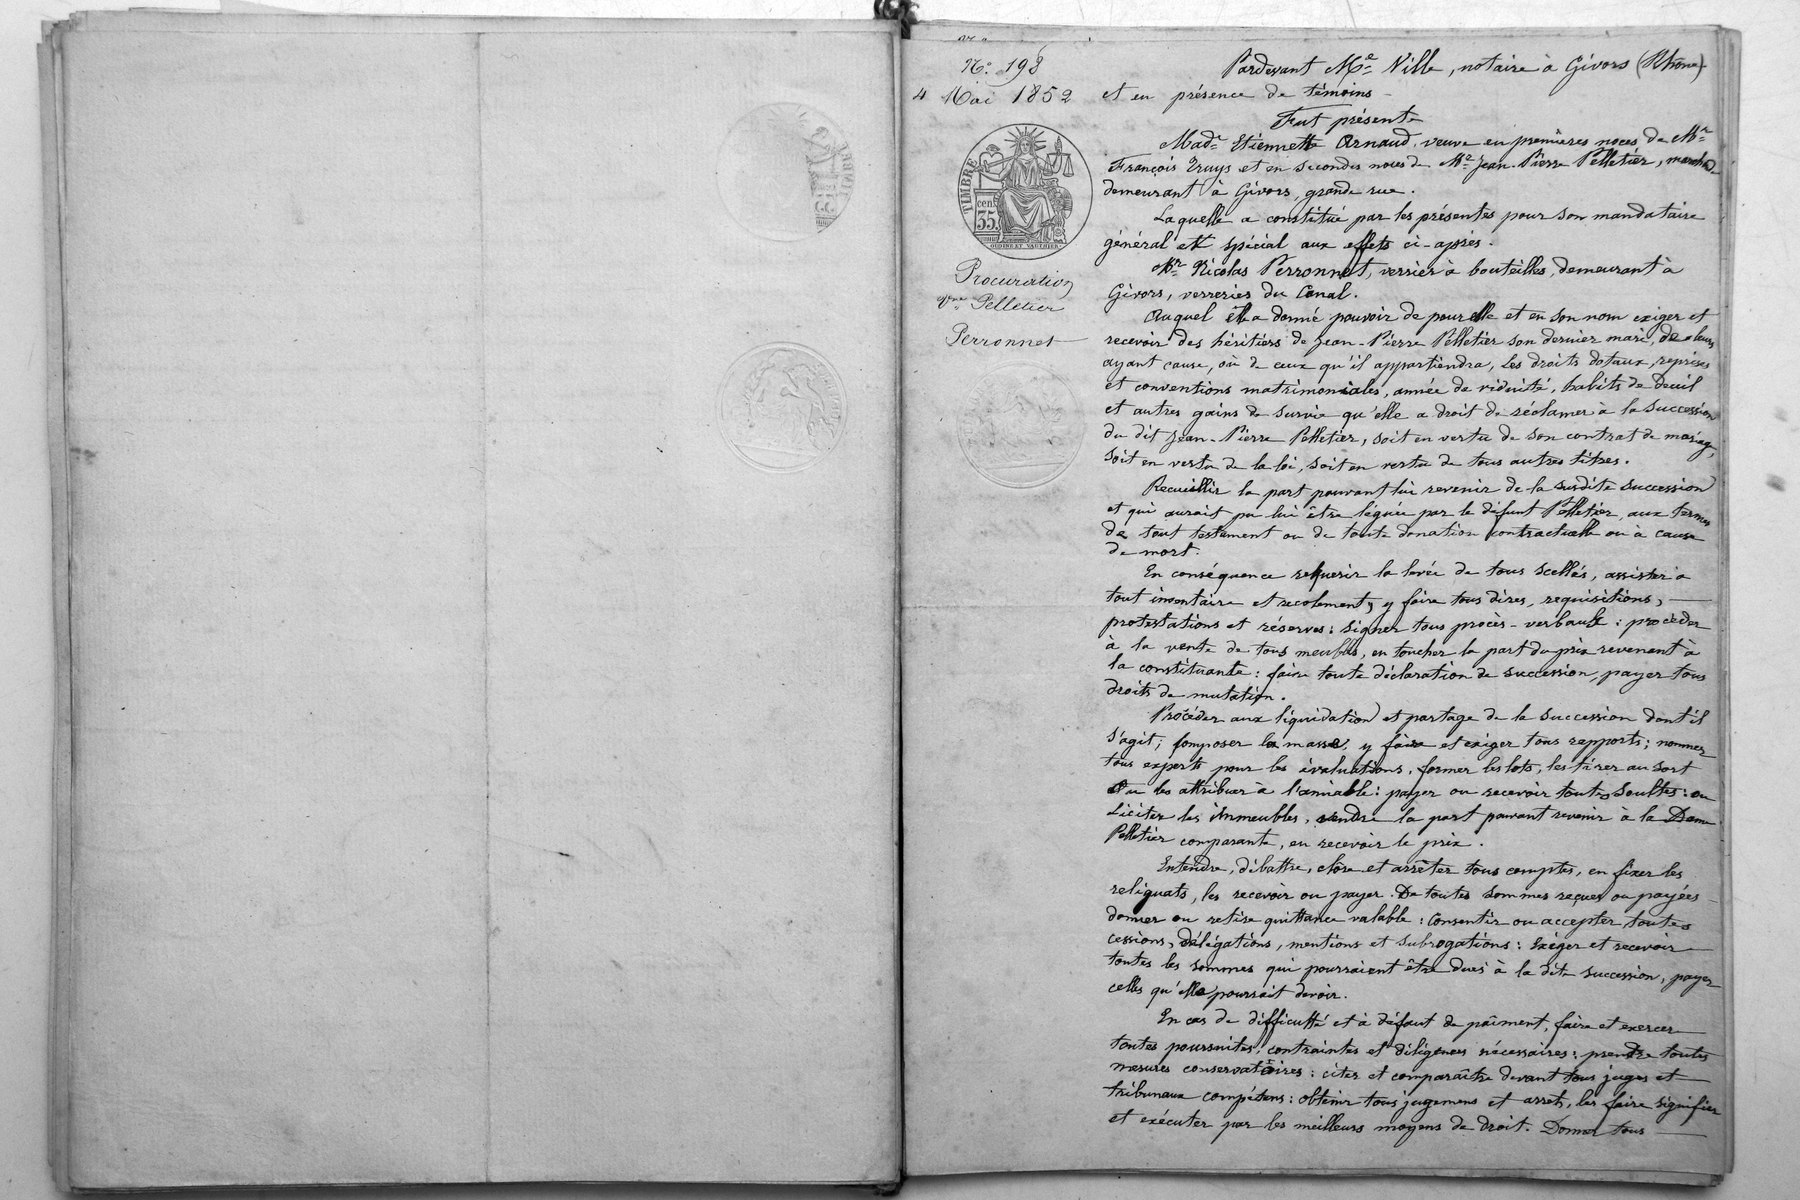 No. 198
4 Mai 1852
TIMBRE
cen.
35
OUDINET VAUTHIER
Procuration
Vve Pelletier
Perronnet
Pardevant Me Ville, notaire à Givors (Rhône)
et en présence de témoins
Fut présente
Made Etiennette Arnaud, veuve en premières noces de Mr
François Eruys et en secondes noces de Mr Jean-Pierre Pelletier, marchde
demeurant à Givors, grande rue.
Laquelle a constitué par les présentes pour son mandataire
général et spécial aux effets ci-après.
Mr Nicolas Perronnet, verrier à bouteilles, demeurant à
Givors, verreries du Canal.
Auquel elle a donné pouvoir de pour elle et en son nom exiger et
recevoir des héritiers de Jean-Pierre Pelletier son dernier mari, de leurs
ayant cause, où de ceux qu'il appartiendra, les droits dotaux, reprises
et conventions matrimoniales, année de viduité, habits de deuil
et autres gains de survie qu'elle a droit de réclamer à la succession
du dit Jean-Pierre Pelletier, soit en vertu de son contrat de mariage,
soit en vertu de la loi, soit en vertu de tous autres titres.
Recueillir la part pouvant lui revenir de la susdite succession
et qui aurait pu lui être léguée par le défunt Pelletier, aux termes
de tout testament ou de toute donation contractuelle ou à cause
de mort.
En conséquence requérir la levée de tous scellés, assister à
tout inventaire et recolement, y faire tous dires, requisitions,
protestations et réserves : signer tous procès-verbaux : procéder
à la vente de tous meubles, en toucher la part du prix revenant à
la constituante : faire toute déclaration de succession, payer tous
droits de mutation.
Procéder aux liquidation et partage de la succession dont il
s'agit ; composer la masse, y faire et exiger tous rapports ; nommer
tous experts pour les évaluations, former les lots, les tirer au sort
ou les attribuer à l'amiable : payer ou recevoir toutes soultes : ou
liciter les immeubles, vendre la part pouvant revenir à la Dame
Pelletier comparante, en recevoir le prix.
Entendre, débattre, clore et arrêter tous comptes, en fixer les
reliquats, les recevoir ou payer. De toutes sommes reçues ou payées
donner ou retirer quittance valable : Consentir ou accepter toutes
cessions, délégations, mentions et subrogations : Exiger et recevoir
toutes les sommes qui pourraient être dues à la dite succession, payer
celles qu'elle pourrait devoir.
En cas de difficulté et à défaut de paiment, faire et exercer
toutes poursuites, contraintes et diligences nécessaires : prendre toutes
mesures conservatoires : citer et comparaître devant tous juges et
tribunaux compétens : obtenir tous jugemens et arrets, les faire signifier
et exécuter par les meilleurs moyens de droit. Donner tous